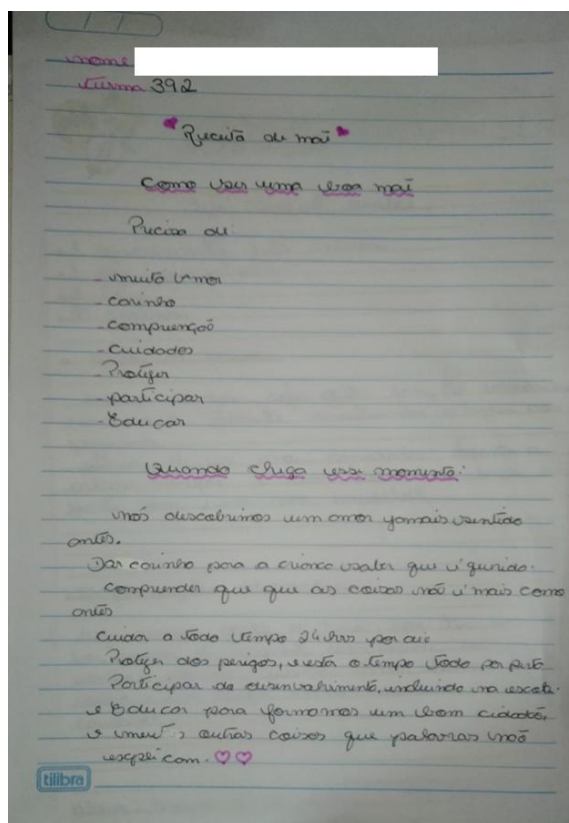 nome
turma 392
Receita de mãe
Como ser uma boa mãe
Precisa de:
- muito amor
- carinho
- compreenção
- cuidados
- Proteger
- participar
- Educar
Quando chega esse momento:
nós descobrimos um amor jamais sentido
antes.
Dar carinho para a criança saber que é querido.
Compreender que que as coisas não é mais como
antes
Cuidar o todo tempo 24 hrs por dia
Proteger dos perigos, e estar o tempo todo por perto
Participar do desenvolvimento, incluindo na escola.
e Educar para formamos um bom cidadão,
e muitas outras coisas que palavras não
explicam.
tilibra